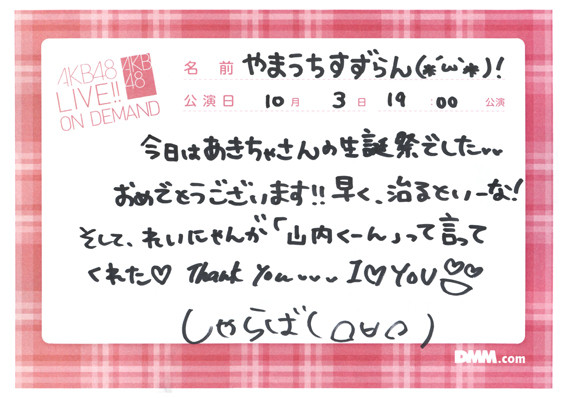 AKB48
LIVE!!
ON DEMAND
AKB
48
名 前 やまうちすずらん(*´ω`*)!
公演日 10月 3日 19:00 公演
今日はあきちゃさんの生誕祭でした
おめでとうございます!!早く、治るといーな!
そして、れいにゃんが「山内くーん」って言って
くれた♡ Thank You.... I♡YOU
しゃらば(
DMM.com